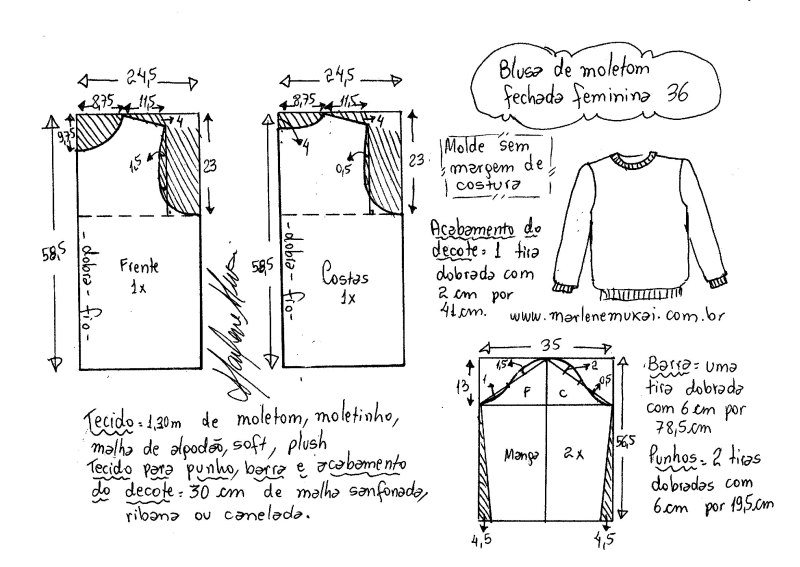 24,5
8,75
11,5
4
9,75
1,5
23
58,5
- dobra - fio -
Frente
1x
24,5
8,75
11,5
4
4
0,5
23
58,5
- dobra - fio -
Costas
1x
Blusa de moletom
fechada feminina 36
Molde sem
margem de
costura
Acabamento do
decote = 1 tira
dobrada com
2 cm por
41 cm.
www.marlenemukai.com.br
Tecido = 1,30m de moletom, moletinho,
malha de algodão, soft, plush
Tecido para punho, barra e acabamento
do decote = 30 cm de malha sanfonada,
ribana ou canelada.
35
13
1
1,5
2
0,5
F
C
Manga 2x
56,5
4,5
4,5
Barra = uma
tira dobrada
com 6 cm por
78,5cm
Punhos = 2 tiras
dobradas com
6 cm por 19,5cm